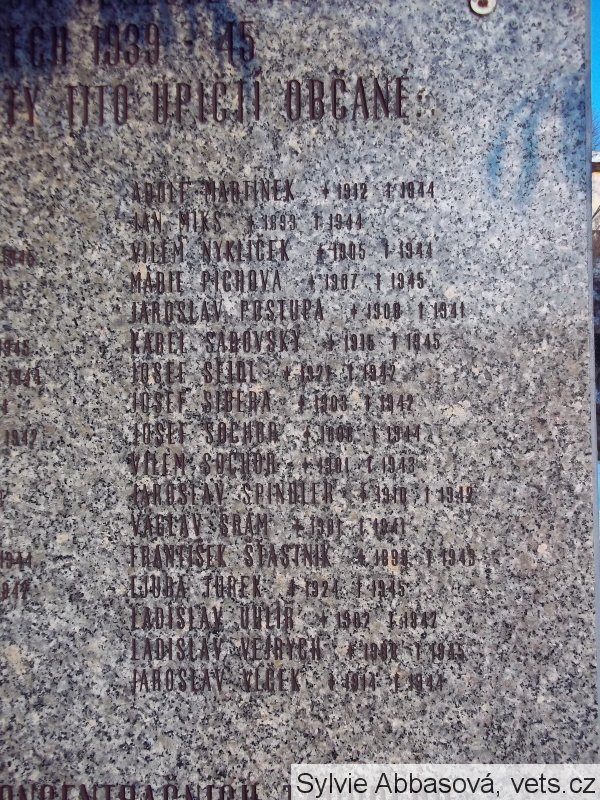 TECH 1939 - 45
TY TITO UPIČTÍ OBČANÉ:
ADOLF MARTINEK * 1912 † 1944
JAN MIKS * 1893 † 1944
VILEM NYKLÍČEK * 1905 † 1944
MARIE PICHOVÁ * 1907 † 1945
JAROSLAV POSTUPA * 1908 † 1941
KAREL SADOVSKÝ * 1916 † 1945
JOSEF SEIDL * 1921 † 1942
JOSEF SIBERA * 1903 † 1942
JOSEF SOCHOR † 1944
VILEM SOCHOR * 1901 † 1943
JAROSLAV ŠPINDLER * 1910 † 1942
VÁCLAV ŠRÁM * 1901 † 1941
FRANTIŠEK ŠŤASTNÍK * 1899 † 1943
LJUBA TUREK * 1924 † 1945
LADISLAV UHLÍŘ * 1902 † 1942
LADISLAV VEJRYCH † 1945
JAROSLAV VLČEK * 1914 † 1944
Sylvie Abbasová, vets.cz